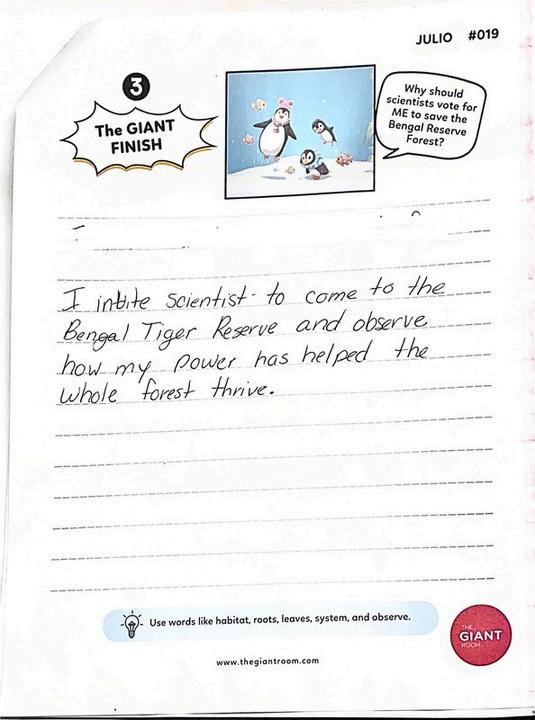 JULIO #019
3
The GIANT
FINISH
Why should
scientists vote for
ME to save the
Bengal Reserve
Forest?
I intite scientist to come to the
Bengal Tiger Reserve and observe
how my power has helped the
whole forest thrive.
Use words like habitat, roots, leaves, system, and observe.
THE
GIANT
ROOM
www.thegiantroom.com